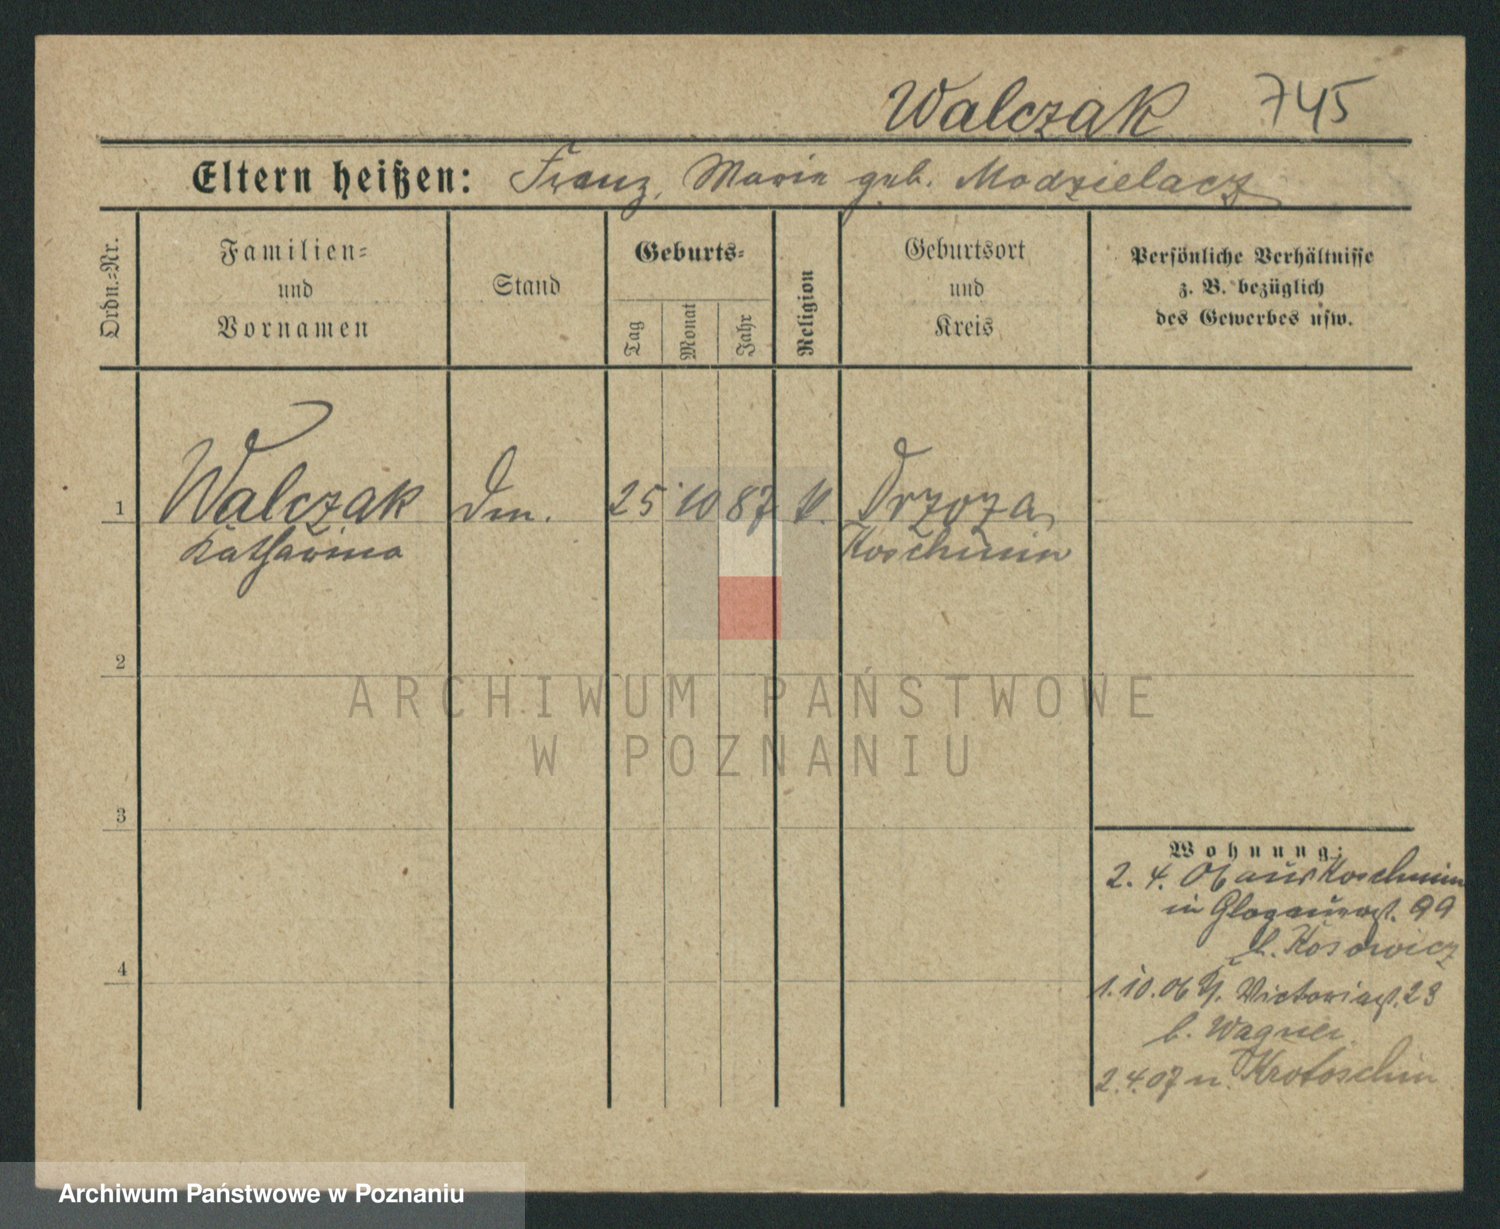 Walczak 745
Eltern heißen: Franz, Marie geb. Modzielacz
Ordn.-Nr.
Familien-
und
Vornamen
Stand
Geburts-
Tag
Monat
Jahr
Religion
Geburtsort
und
Kreis
Persönliche Verhältnisse
z. B. bezüglich
des Gewerbes usw.
1 Walczak Dm. 25 10 87 k. Drzoza
Katharina Koschmin
2
ARCHIWUM PAŃSTWOWE
W POZNANIU
3
Wohnung:
2. 4. 06 aus Koschmin
in Glogauerst. 99
b. Kosowicz
4
1. 10. 06 Victoriast. 23
b. Wagner
2. 4. 07 n. Krotoschin
Archiwum Państwowe w Poznaniu